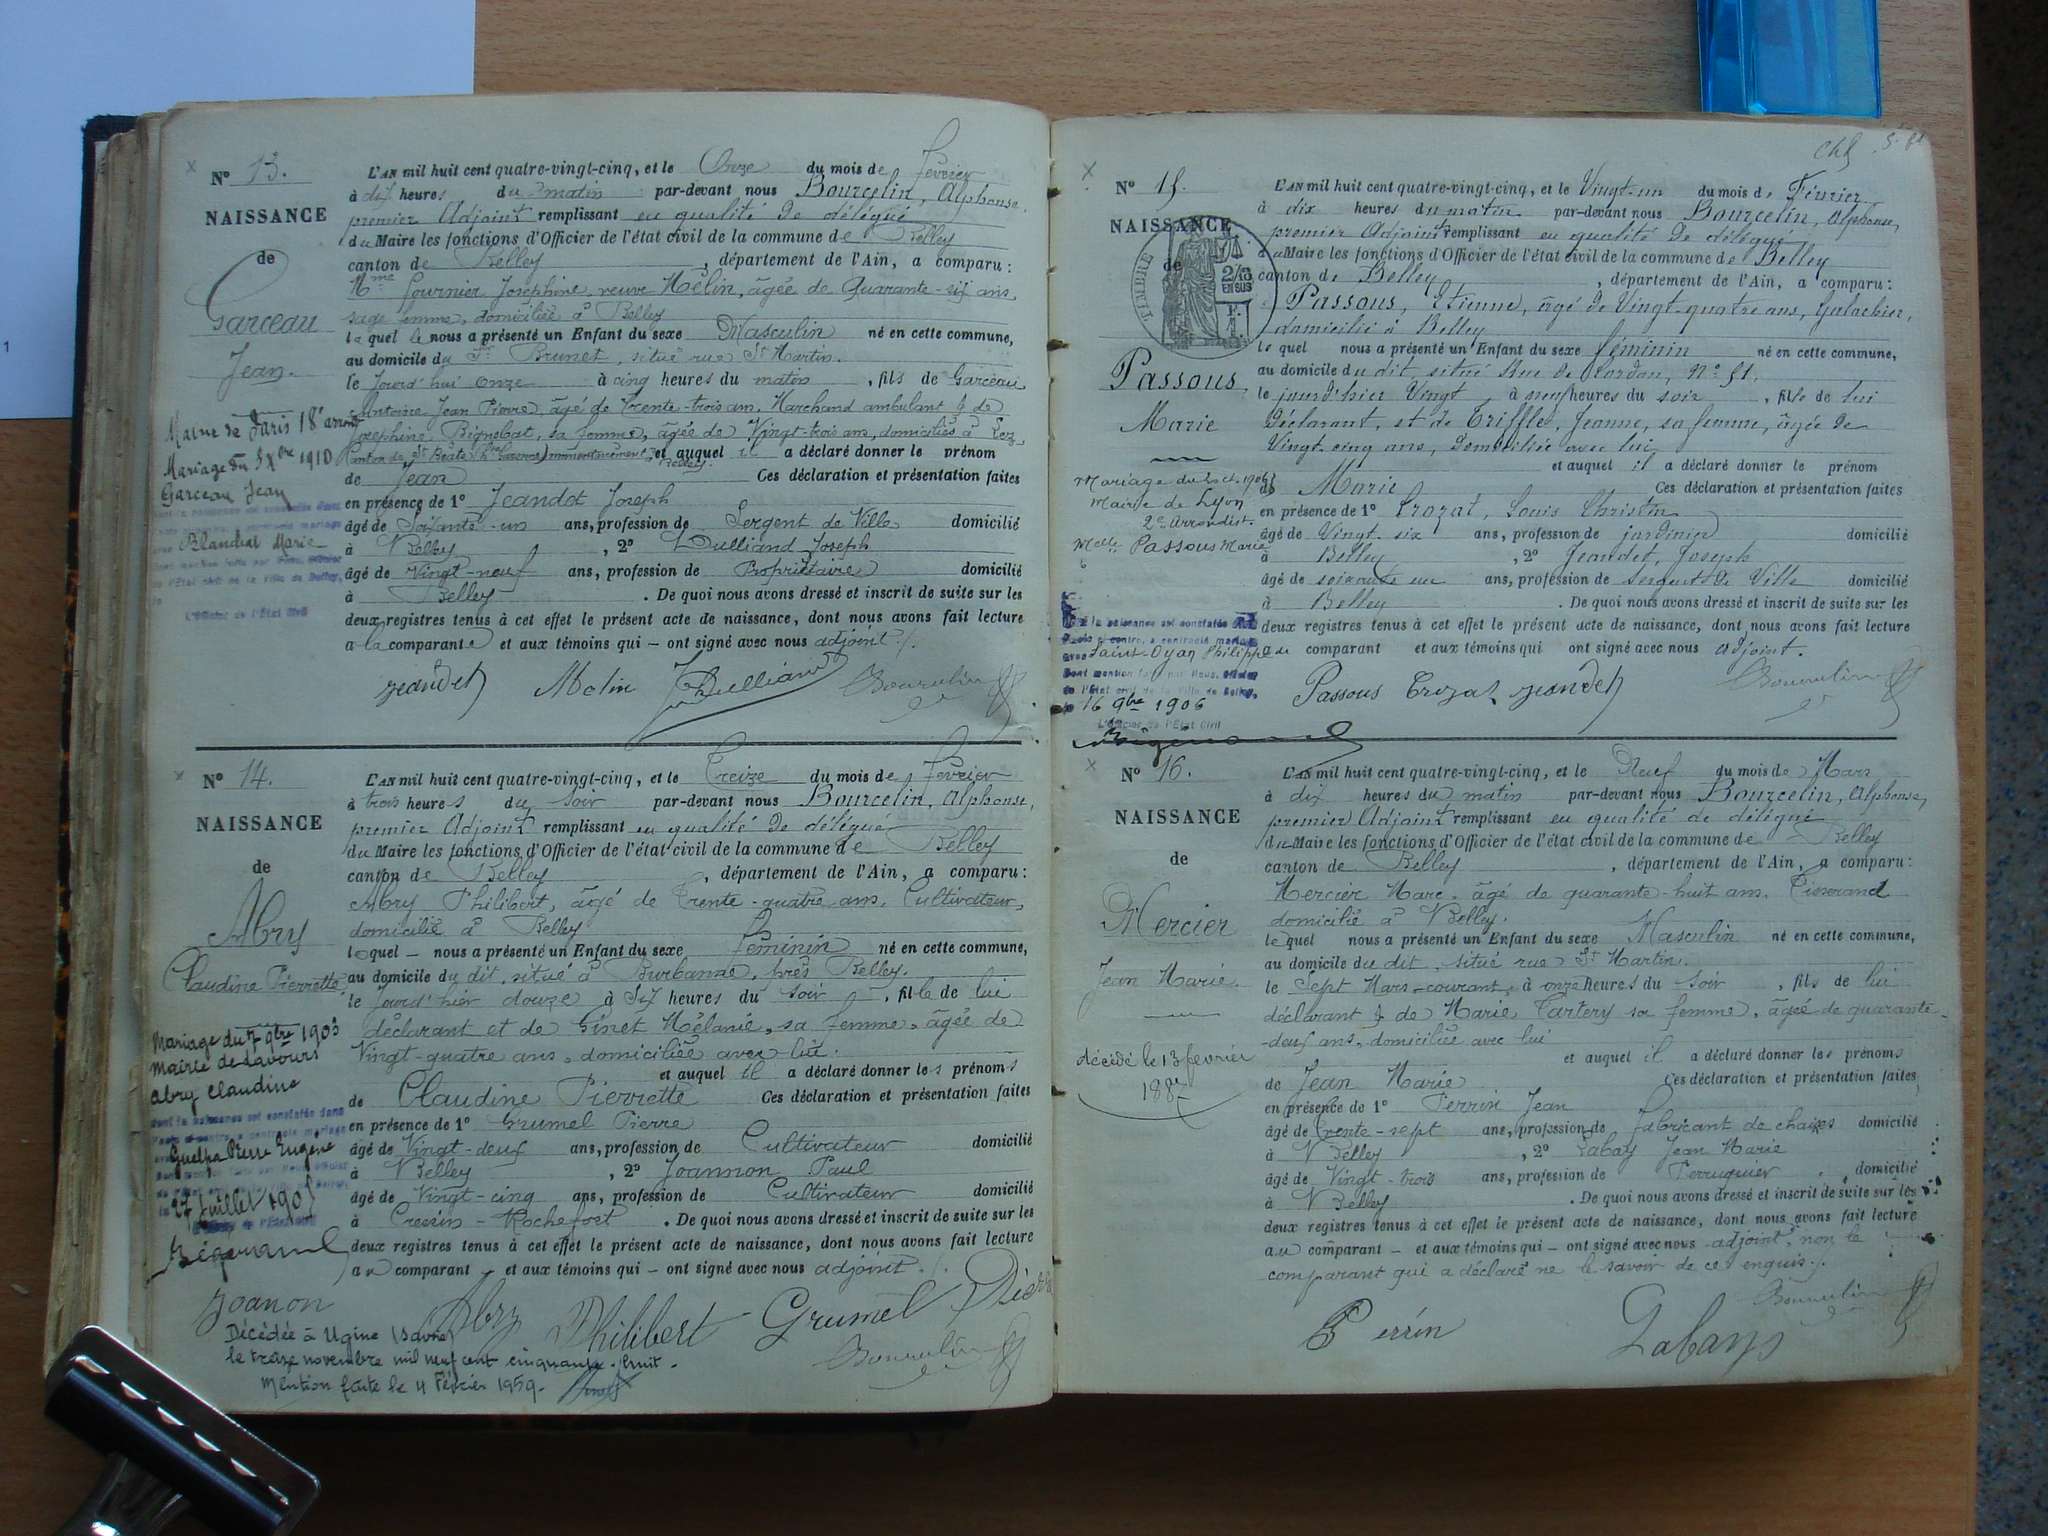 N° 13.
NAISSANCE
de
Garceau
Jean.
Mairie de Paris 18e arrondt
Mariage du 3 Xbre 1910
Garceau Jean
Blanchat Marie
L'Officier de l'État Civil
L'AN mil huit cent quatre-vingt-cinq, et le Onze du mois de février
à dix heures du matin par-devant nous Bourcelin, Alphonse,
premier Adjoint remplissant en qualité de délégué
du Maire les fonctions d'Officier de l'état civil de la commune de Belley
canton de Belley, département de l'Ain, a comparu :
Mme Fournier Joséphine, veuve Mélin, âgée de Quarante-six ans,
sage femme, domiciliée à Belley
laquelle nous a présenté un Enfant du sexe Masculin né en cette commune,
au domicile du Sr Brunet, situé rue St Martin.
le jourd'hui onze à cinq heures du matin, fils de Garceau
Antoine Jean Pierre, âgé de trente-trois ans, Marchand ambulant & de
Joséphine, sa femme, âgée de Vingt-trois ans, domiciliés à
et auquel il a déclaré donner le prénom
de Jean Ces déclaration et présentation faites
en présence de 1° Jeandet Joseph
âgé de Soixante-un ans, profession de Sergent de Ville domicilié
à Belley, 2° Dulliand Joseph
âgé de Vingt-neuf ans, profession de Propriétaire domicilié
à Belley. De quoi nous avons dressé et inscrit de suite sur les
deux registres tenus à cet effet le présent acte de naissance, dont nous avons fait lecture
a la comparante et aux témoins qui – ont signé avec nous adjoint ./.
Jeandet Melin J Dulliand Bourcelin
N° 14.
NAISSANCE
de
Abry
Claudine Pierrette
Mariage du 7 9bre 1903
Mairie de Lavours
Abry Claudine
dont la naissance est constatée dans
Guelpa Pierre Eugène
27 Juillet 1905
L'AN mil huit cent quatre-vingt-cinq, et le Treize du mois de février
à trois heures du soir par-devant nous Bourcelin, Alphonse,
premier Adjoint remplissant en qualité de délégué
du Maire les fonctions d'Officier de l'état civil de la commune de Belley
canton de Belley, département de l'Ain, a comparu :
Abry Philibert, âgé de trente-quatre ans, Cultivateur,
domicilié à Belley
lequel – nous a présenté un Enfant du sexe féminin né en cette commune,
au domicile du dit, situé à Burbanne, près Belley.
le jourd'hier douze à Six heures du soir, fille de lui
déclarant et de Ginet Mélanie, sa femme, âgée de
Vingt-quatre ans, domiciliée avec lui.
et auquel il a déclaré donner les prénoms
de Claudine Pierrette Ces déclaration et présentation faites
en présence de 1° Grumel Pierre
âgé de Vingt-deux ans, profession de Cultivateur domicilié
à Belley, 2° Joannon Paul
âgé de Vingt-cinq ans, profession de Cultivateur domicilié
à Cressin-Rochefort. De quoi nous avons dressé et inscrit de suite sur les
deux registres tenus à cet effet le présent acte de naissance, dont nous avons fait lecture
au comparant et aux témoins qui – ont signé avec nous adjoint ./.
Joanon Abry Philibert Grumel Pierre
Bourcelin
Décédée à Ugine (Savoie)
le treize novembre mil neuf cent cinquante-huit.
Mention faite le 4 Février 1959.
N° 15.
NAISSANCE
de
TIMBRE
2/10
EN SUS
Passous,
Marie
Mariage du 2 oct. 1906
Mairie de Lyon
2e Arrondist.
Melle Passous Marie
la naissance est constatée
ci contre, a contracté mariage
avec Saint-Oyan Philippe
Dont mention faite par Nous, Officier
de l'État civil de la Ville de Belley,
le 16 9bre 1906
L'Officier de l'État Civil
L'AN mil huit cent quatre-vingt-cinq, et le Vingt-un du mois de Février
à dix heures du matin par-devant nous Bourcelin, Alphonse,
premier Adjoint remplissant en qualité de délégué
du Maire les fonctions d'Officier de l'état civil de la commune de Belley
canton de Belley, département de l'Ain, a comparu :
Passous, Etienne, âgé de Vingt-quatre ans, Galochier,
domicilié à Belley
lequel nous a présenté un Enfant du sexe féminin né en cette commune,
au domicile du dit, situé Rue de Lordon, N° 51.
le jourd'hier Vingt à neuf heures du soir, fille de lui
déclarant, et de Triffle, Jeanne, sa femme, âgée de
Vingt-cinq ans, domiciliée avec lui
et auquel il a déclaré donner le prénom
de Marie Ces déclaration et présentation faites
en présence de 1° Crozat, Louis Christin
âgé de Vingt-six ans, profession de jardinier domicilié
à Belley, 2° Jeandet, Joseph
âgé de soixante un ans, profession de sergent de Ville domicilié
à Belley. De quoi nous avons dressé et inscrit de suite sur les
deux registres tenus à cet effet le présent acte de naissance, dont nous avons fait lecture
au comparant et aux témoins qui ont signé avec nous adjoint.
Passous Crozat Jeandet Bourcelin
N° 16.
NAISSANCE
de
Mercier
Jean Marie
décédé le 13 février
L'AN mil huit cent quatre-vingt-cinq, et le Neuf du mois de Mars
à dix heures du matin par-devant nous Bourcelin, Alphonse,
premier Adjoint remplissant en qualité de délégué
du Maire les fonctions d'Officier de l'état civil de la commune de Belley
canton de Belley, département de l'Ain, a comparu :
Mercier Marc, âgé de quarante-huit ans, Tisserand
domicilié à Belley.
lequel nous a présenté un Enfant du sexe Masculin né en cette commune,
au domicile du dit, situé rue St Martin.
le Sept Mars courant, à onze heures du soir, fils de lui
déclarant & de Marie Tartery sa femme, âgée de quarante-
-deux ans, domiciliée avec lui
et auquel il a déclaré donner les prénoms
de Jean Marie Ces déclaration et présentation faites
en présence de 1° Perrin Jean
âgé de trente-sept ans, profession de fabricant de chaises domicilié
à Belley, 2° Labay Jean Marie
âgé de Vingt-trois ans, profession de Perruquier, domicilié
à Belley. De quoi nous avons dressé et inscrit de suite sur les
deux registres tenus à cet effet le présent acte de naissance, dont nous avons fait lecture
au comparant – et aux témoins qui – ont signé avec nous adjoint, non le
comparant qui a déclaré ne le savoir de ce enquis ./.
Perrin Labay Bourcelin